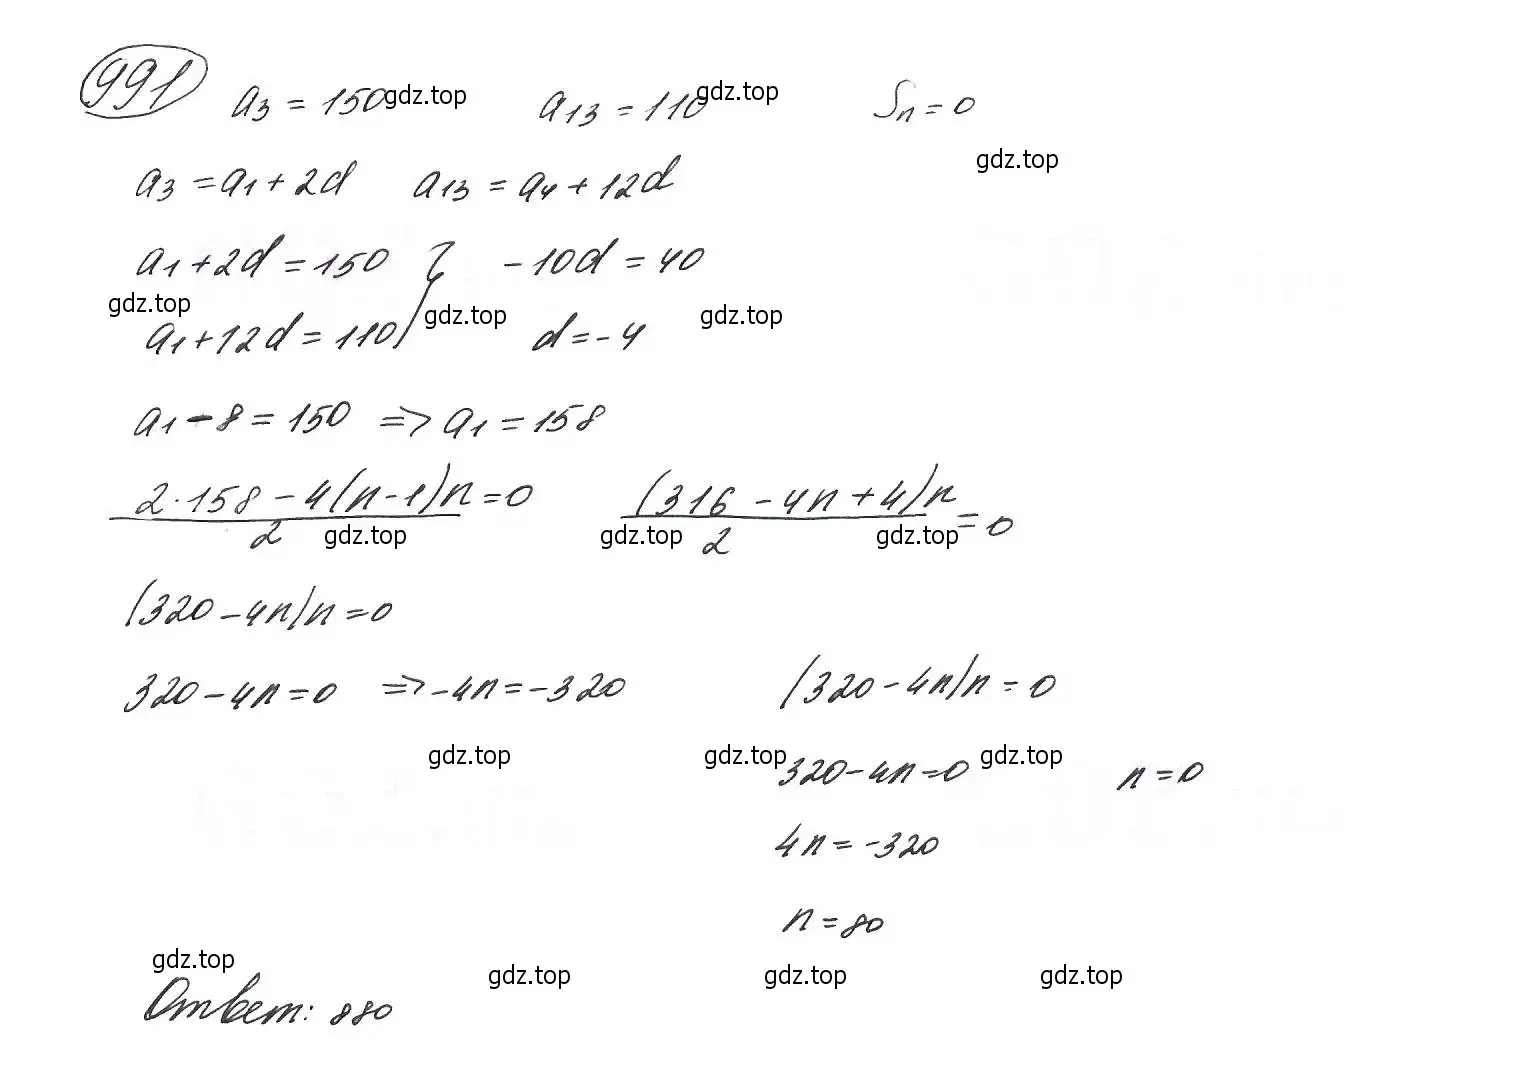 991 a3 = 150 gdz.top a13 = 110 gdz.top Sn = 0
gdz.top
a3 = a1 + 2d a13 = a4 + 12d
a1 + 2d = 150 } -10d = 40
gdz.top gdz.top gdz.top
a1 + 12d = 110 d = -4
a1 - 8 = 150 => a1 = 158
2·158 - 4(n-1)n = 0 (316 - 4n + 4)n
2 gdz.top gdz.top 2 gdz.top = 0
(320 - 4n)n = 0
320 - 4n = 0 => -4n = -320 (320 - 4n)n = 0
gdz.top gdz.top gdz.top
320 - 4n = 0 n = 0
4n = -320
n = 80
gdz.top gdz.top gdz.top gdz.top
Ответ: 880